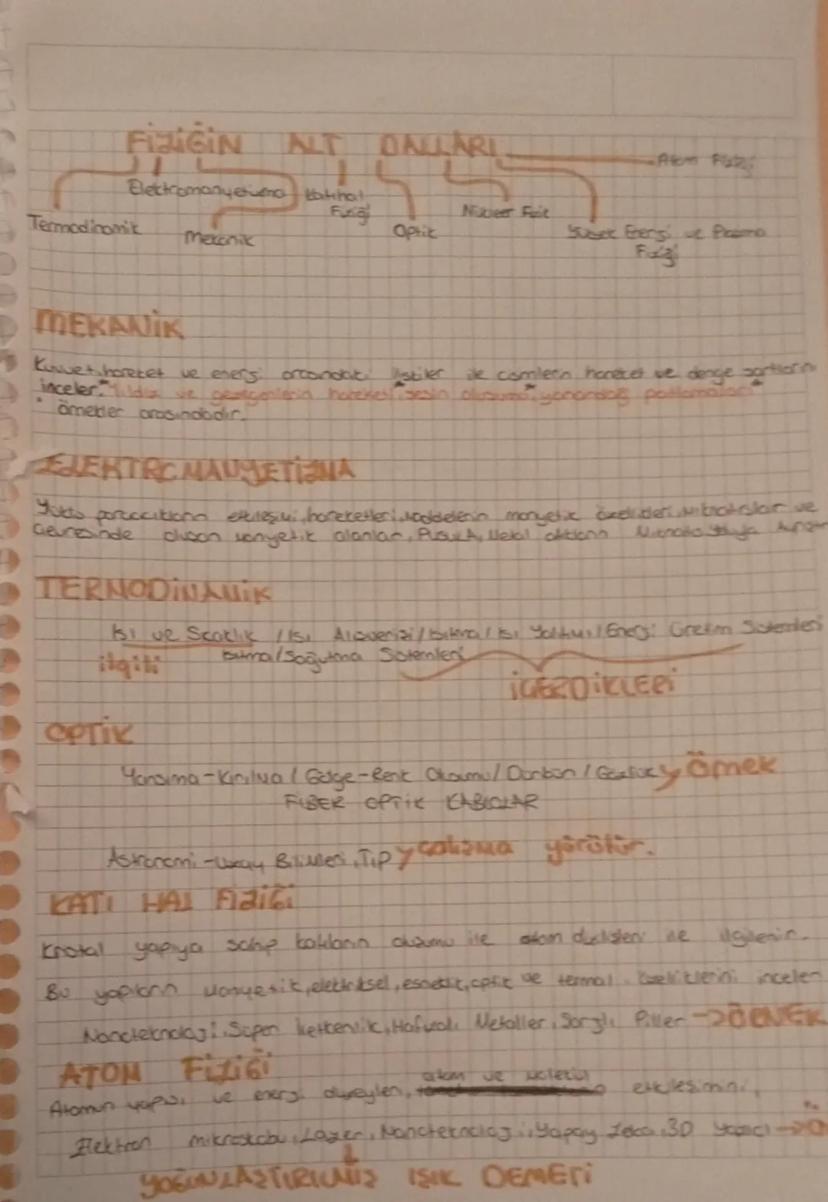 FİZİĞİN ALT DALLARI
Atom Fiziği
Elektromanyetizma Katıhal
Fiziği
Termodinamik Mekanik Optik Nükleer Fizik Yüksek Enerji ve Plazma
Fiziği
MEKANİK
Kuvvet, hareket ve enerji arasındaki ilişkiler ile cisimlerin hareket ve denge şartlarını
inceler. Yıldız ve gezegenlerin hareketi, sesin oluşumu, yanardağ patlamaları
örnekler arasındadır.
ELEKTROMANYETİZMA
Yüklü parçacıkların etkileşimi, hareketleri, maddelerin manyetik özellikleri, Mıknatıslar ve
Çevresinde oluşan manyetik alanlar, Pusula, Metal
TERMODİNAMİK
Isı ve Sıcaklık / Isı Alışverişi / Isınma / Isı Yalıtımı / Enerji Üretim Sistemleri
ilgili Isıtma/Soğutma Sistemleri
İÇERDİKLERİ
OPTİK
Yansıma-Kırılma / Gölge-Renk Oluşumu / Dürbün / Gözlük Örnek
FİBER OPTİK KABLOLAR
Astronomi-Uzay Bilimleri, Tıp çalışma yürütür.
KATI HAL FİZİĞİ
Kristal yapıya sahip katıların oluşumu ile atom dizilişleri ile ilgilenir.
Bu yapıların manyetik, elektriksel, esneklik, optik ve termal özelliklerini inceler
Nanoteknoloji, Süper İletkenlik, Hafızalı Metaller, Şarjlı Piller → ÖRNEK
ATOM FİZİĞİ
atom ve molekül
Atomun yapısı ve enerji düzeyleri, etkileşimini,
Elektron mikroskobu, Lazer, Nanoteknoloji, Yapay Zeka, 3D Yazıcı →
YOĞUNLAŞTIRILMIŞ IŞIK DEMETİ